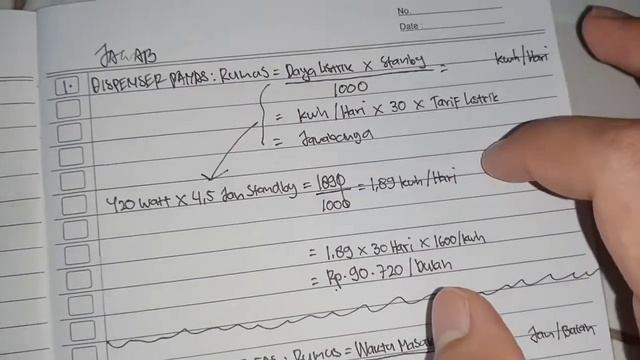 No.
Date
JAWAB
1. DISPENSER PANAS : Rumus = Daya listrik × Stanby / 1000 = kwh/Hari
= kwh/Hari × 30 × Tarif Listrik
= Jawabannya
420 watt × 4,5 Jam Standby = 1890 / 1000 = 1,89 kwh/Hari
= 1.89 × 30 Hari × 1600/kwh
= Rp. 90.720/bulan
: Rumus = Waktu Masak Jam/Batch